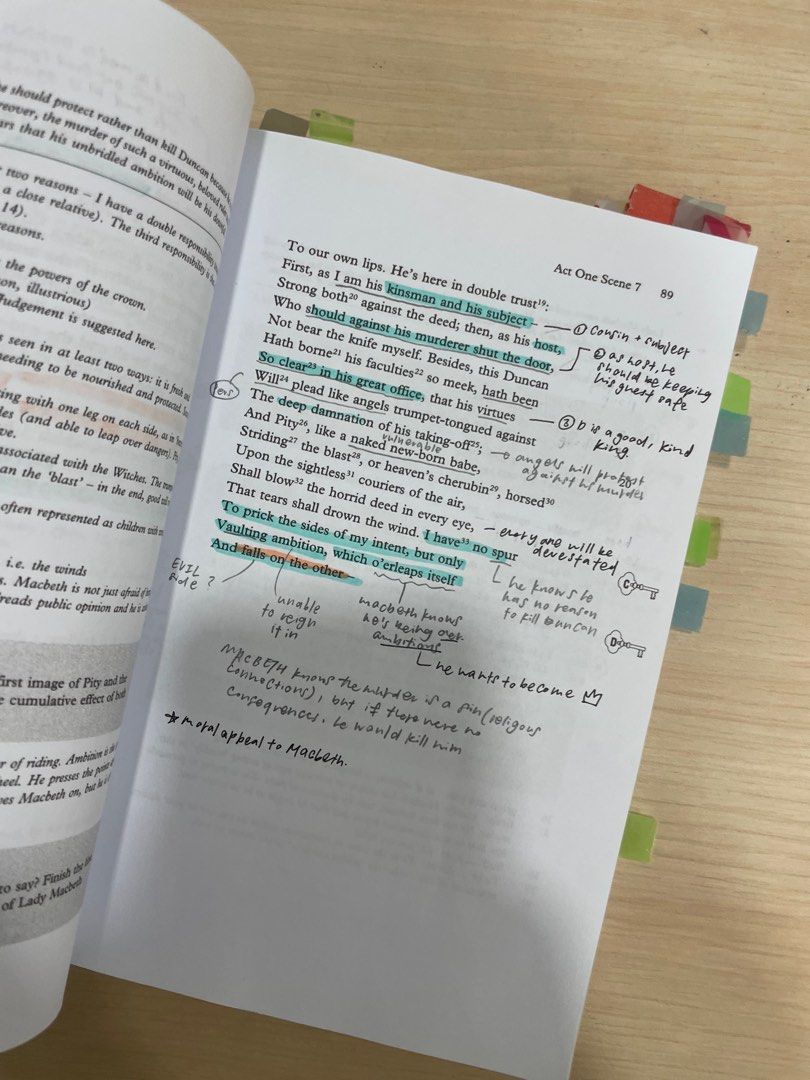 e should protect rather than kill Duncan because
reover, the murder of such a virtuous, beloved
ars that his unbridled ambition will be his
two reasons – I have a double responsibility
a close relative). The third responsibility is
14).
reasons.
the powers of the crown.
on, illustrious)
Judgement is suggested here.
s seen in at least two ways: it is fresh and
needing to be nourished and protected.
ing with one leg on each side, as in
les (and able to leap over danger).
ve.
associated with the Witches. The
an the 'blast' – in the end, good
often represented as children with
i.e. the winds
s. Macbeth is not just afraid of
dreads public opinion and he is
first image of Pity and the
e cumulative effect of both
r of riding. Ambition is the
heel. He presses the
ves Macbeth on, but
to say? Finish the
of Lady Macbeth
Act One Scene 7 89
To our own lips. He's here in double trust19:
First, as I am his kinsman and his subject – ① cousin + subject
Strong both20 against the deed; then, as his host,
Who should against his murderer shut the door, ② as host, he
should be keeping
his guest safe
Not bear the knife myself. Besides, this Duncan
Hath borne21 his faculties22 so meek, hath been
So clear23 in his great office, that his virtues ③ D is a good, kind
king
Will24 plead like angels trumpet-tongued against
The deep damnation of his taking-off25; → angels will protest
against his murder
vulnerable
And Pity26, like a naked new-born babe,
Striding27 the blast28, or heaven's cherubin29, horsed30
Upon the sightless31 couriers of the air,
Shall blow32 the horrid deed in every eye, – everyone will be
devestated
That tears shall drown the wind. I have33 no spur
To prick the sides of my intent, but only
Vaulting ambition, which o'erleaps itself
And falls on the other –
EVIL
side?
unable
to reign
it in
macbeth knows
he's being over
ambitious
he wants to become
he knows he
has no reason
to kill Duncan
C
D
MACBETH knows the murder is a sin (religous
connections), but if there were no
consequences, he would kill him
★ moral appeal to Macbeth.